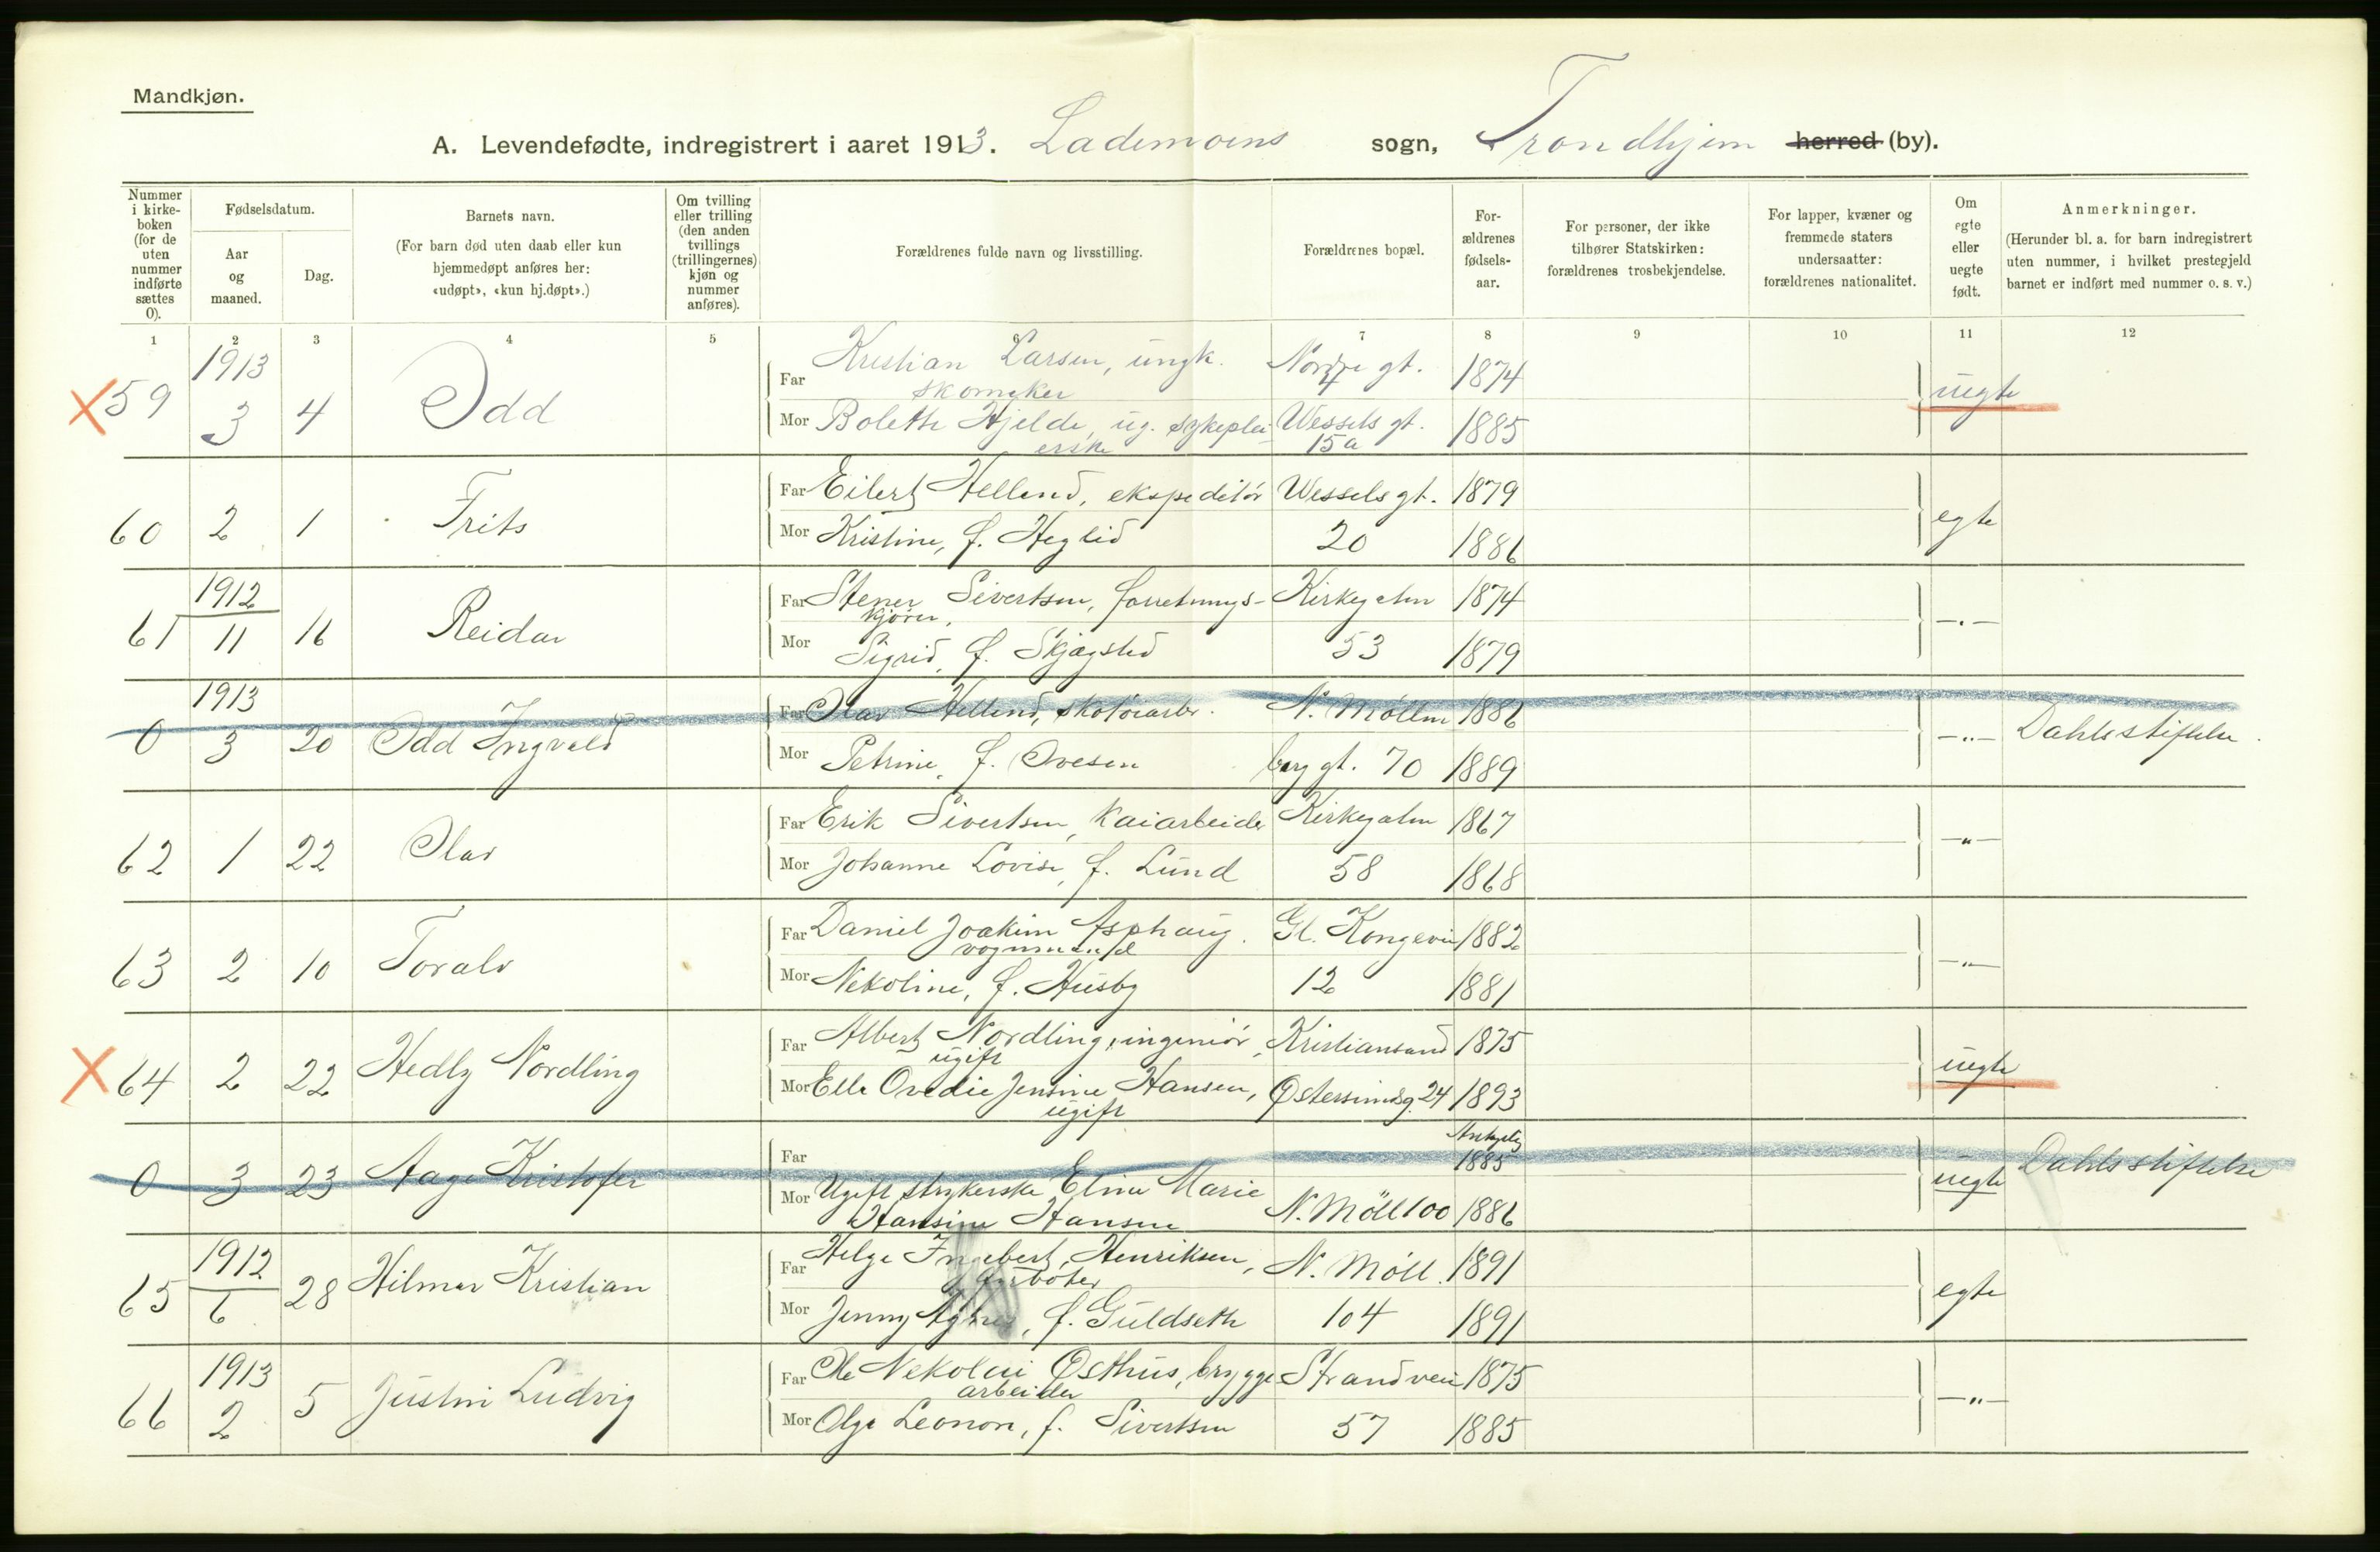 Mandkjøn.
A. Levendefødte, indregistrert i aaret 1913. Lademoens sogn, Trondhjem herred (by).
Nummer i kirke-boken (for de uten nummer indførte sættes 0).
Fødselsdatum.
Aar og maaned.
Dag.
Barnets navn.
(For barn død uten daab eller kun hjemmedøpt anføres her: «udøpt», «kun hj.døpt».)
Om tvilling eller trilling (den anden tvillings (trillingernes) kjøn og nummer anføres).
Forældrenes fulde navn og livsstilling.
Forældrenes bopæl.
For-ældrenes fødsels-aar.
For personer, der ikke tilhører Statskirken: forældrenes trosbekjendelse.
For lapper, kvæner og fremmede staters undersaatter: forældrenes nationalitet.
Om egte eller uegte født.
Anmerkninger.
(Herunder bl. a. for barn indregistrert uten nummer, i hvilket prestegjeld barnet er indført med nummer o. s. v.)
1 2 3 4 5 6 7 8 9 10 11 12
1913
X 59 3 4 Odd
Far Kristian Larsen, ungk. skomaker Nordre gt. 1874
Mor Boleth Hjelde, ug. sykeplei-erske Wessels gt. 15a 1885
uegte
60 2 1 Frits
Far Eilert Helland, ekspeditör Wessels gt. 1879
Mor Kristine, f. Heglid 20 1886
egte
1912
61 11 16 Reidar
Far Stener Sivertsen, forretnings-kjører, Kirkegaten 1874
Mor Sigrid, f. Skjøgsted 53 1879
—.—
1913
0 3 20 Odd Ingvald
Far Olav Helland, skotöiarb. N. Möllen 1886
Mor Petrine, f. Ovesen berg gt. 70 1889
—"— Dahls stiftelse.
62 1 22 Olav
Far Erik Sivertsen, kaiarbeider Kirkegaten 1867
Mor Johanne Lovise, f. Lund 58 1868
—"—
63 2 10 Toralv
Far Daniel Joakim Asphaug. vognmand Gl. Kongevei 1882
Mor Nekoline, f. Husby 12 1881
—"—
X 64 2 22 Hedly Nordling
Far Albert Nordling, ingeniör, ugift Kristiansand 1875
Mor Ella Ovedie Jensine Hansen, ugift Østersundsg. 24 1893
uegte
0 3 23 Aage Kristofer
Far 1885
Mor Ugift strykerske Elina Marie Hansine Hansen N. Möll 100 1886
uegte Dahls stiftelse
1912
65 6 28 Hilmar Kristian
Far Helge Ingebert Henriksen, N. Möll. 1891
Mor Jenny Agnes, f. Guldseth 104 1891
egte
1913
66 2 5 Justin Ludvig
Far Ole Nekolai Østhus, brygge arbeider Strandvei 1875
Mor Olga Leonore, f. Sivertsen 57 1885
—"—